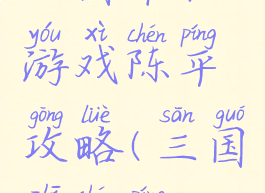 yóu xì chén píng
游戏陈平
gōng lüè sān guó
攻略(三国